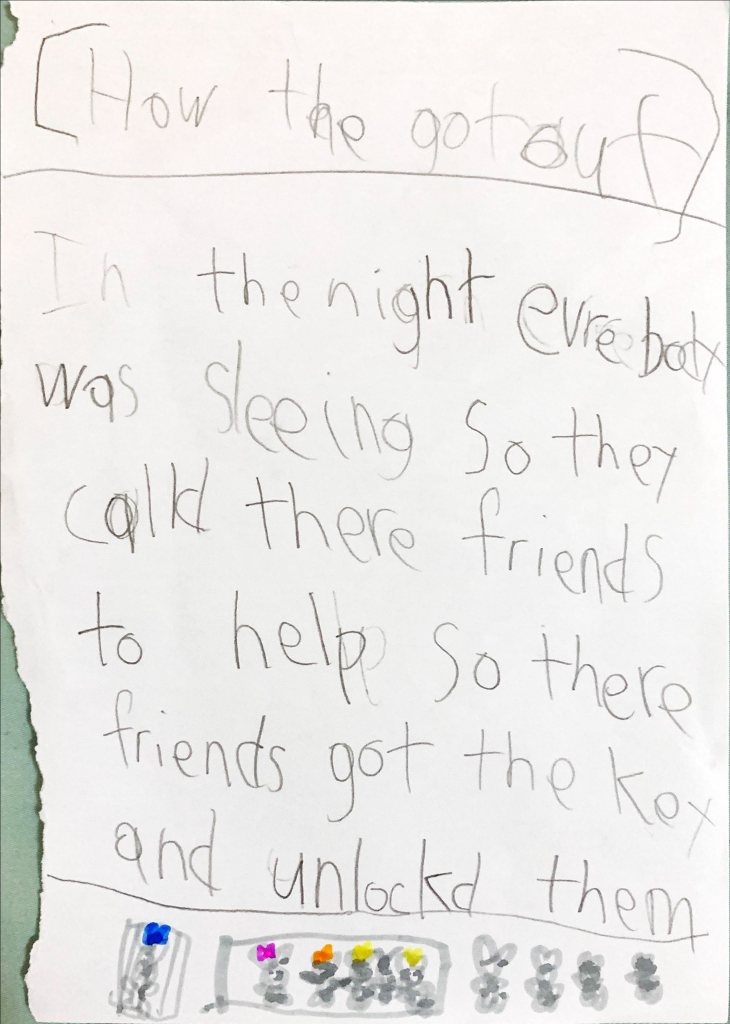 [How the got out]
In the night evrebody
was sleeing so they
calld there friends
to help so there
friends got the key
and unlockd them